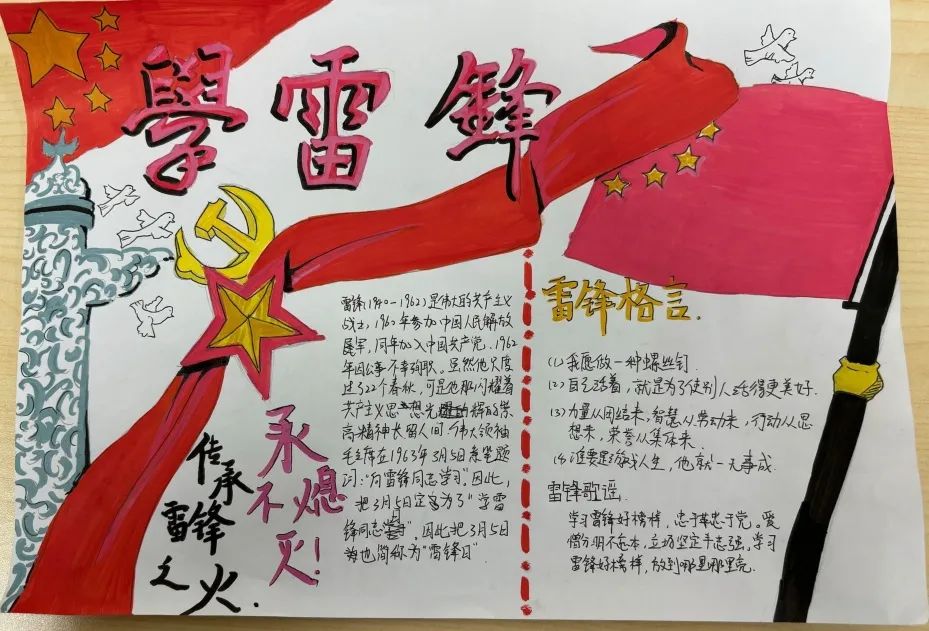 學雷鋒
雷锋(1940-1962)是伟大的共产主义
战士,1960年参加中国人民解放
军,同年加入中国共产党,1962
年因公事不幸殉职。虽然他只度
过了22个春秋,可是他那闪耀着
共产主义思想光辉的崇
高精神长留人间。伟大领袖
毛主席在1963年3月5日亲笔题
词:"向雷锋同志学习"。因此,
把3月5日定为了"学雷
锋同志",因此把3月5日
也简称为"雷锋日"
永不熄灭!
传承
雷锋
之火.
雷锋格言.
(1)我愿做一种螺丝钉
(2)自己活着,就是为了使别人活得更美好.
(3)力量从团结来,智慧从劳动来,行动从思
想来,荣誉从集体来.
(4)谁要是游戏人生,他就一无事成.
雷锋歌谣.
学习雷锋好榜样,忠于革忠于党。爱
憎分明不忘本,立场坚定手志强。学习
雷锋好榜样,放到哪里哪里亮.